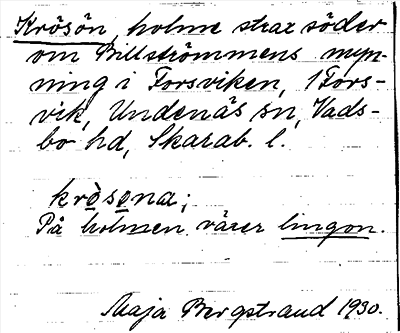 Krösön, holme strax söder
om Billströmmens myn-
ning i Forsviken, 1 Fors-
vik, Undenäs sn, Vads-
bo hd, Skarab. l.
krò̤sǫna;
På holmen växer lingon.
Maja Bergstrand 1930.